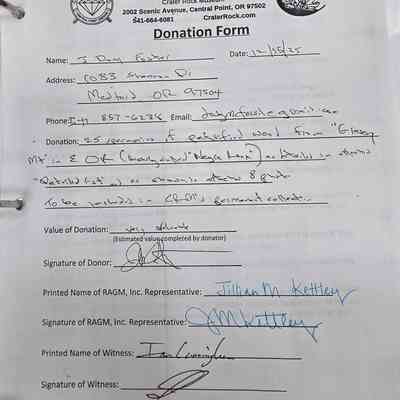 Crater Rock Museum
2002 Scenic Avenue, Central Point, OR 97502
541-664-6081 CraterRock.com
Donation Form
Name: J Doug Foster Date: 12/15/25
Address: 1083 Dr
Medford OR 97504
Phone: 541 857-6236 Email:
Donation: 25 specimens of petrified wood from "Glassy
Mt" in E OR ( ) as in attached
"Detailed list" and as shown in attached 8 photos
To be included in CRM's permanent collection.
Value of Donation: very
(Estimated value completed by donator)
Signature of Donor:
Printed Name of RAGM, Inc. Representative: Jillian M Kettley
Signature of RAGM, Inc. Representative: JM Kettley
Printed Name of Witness: Ian Cunningham
Signature of Witness: